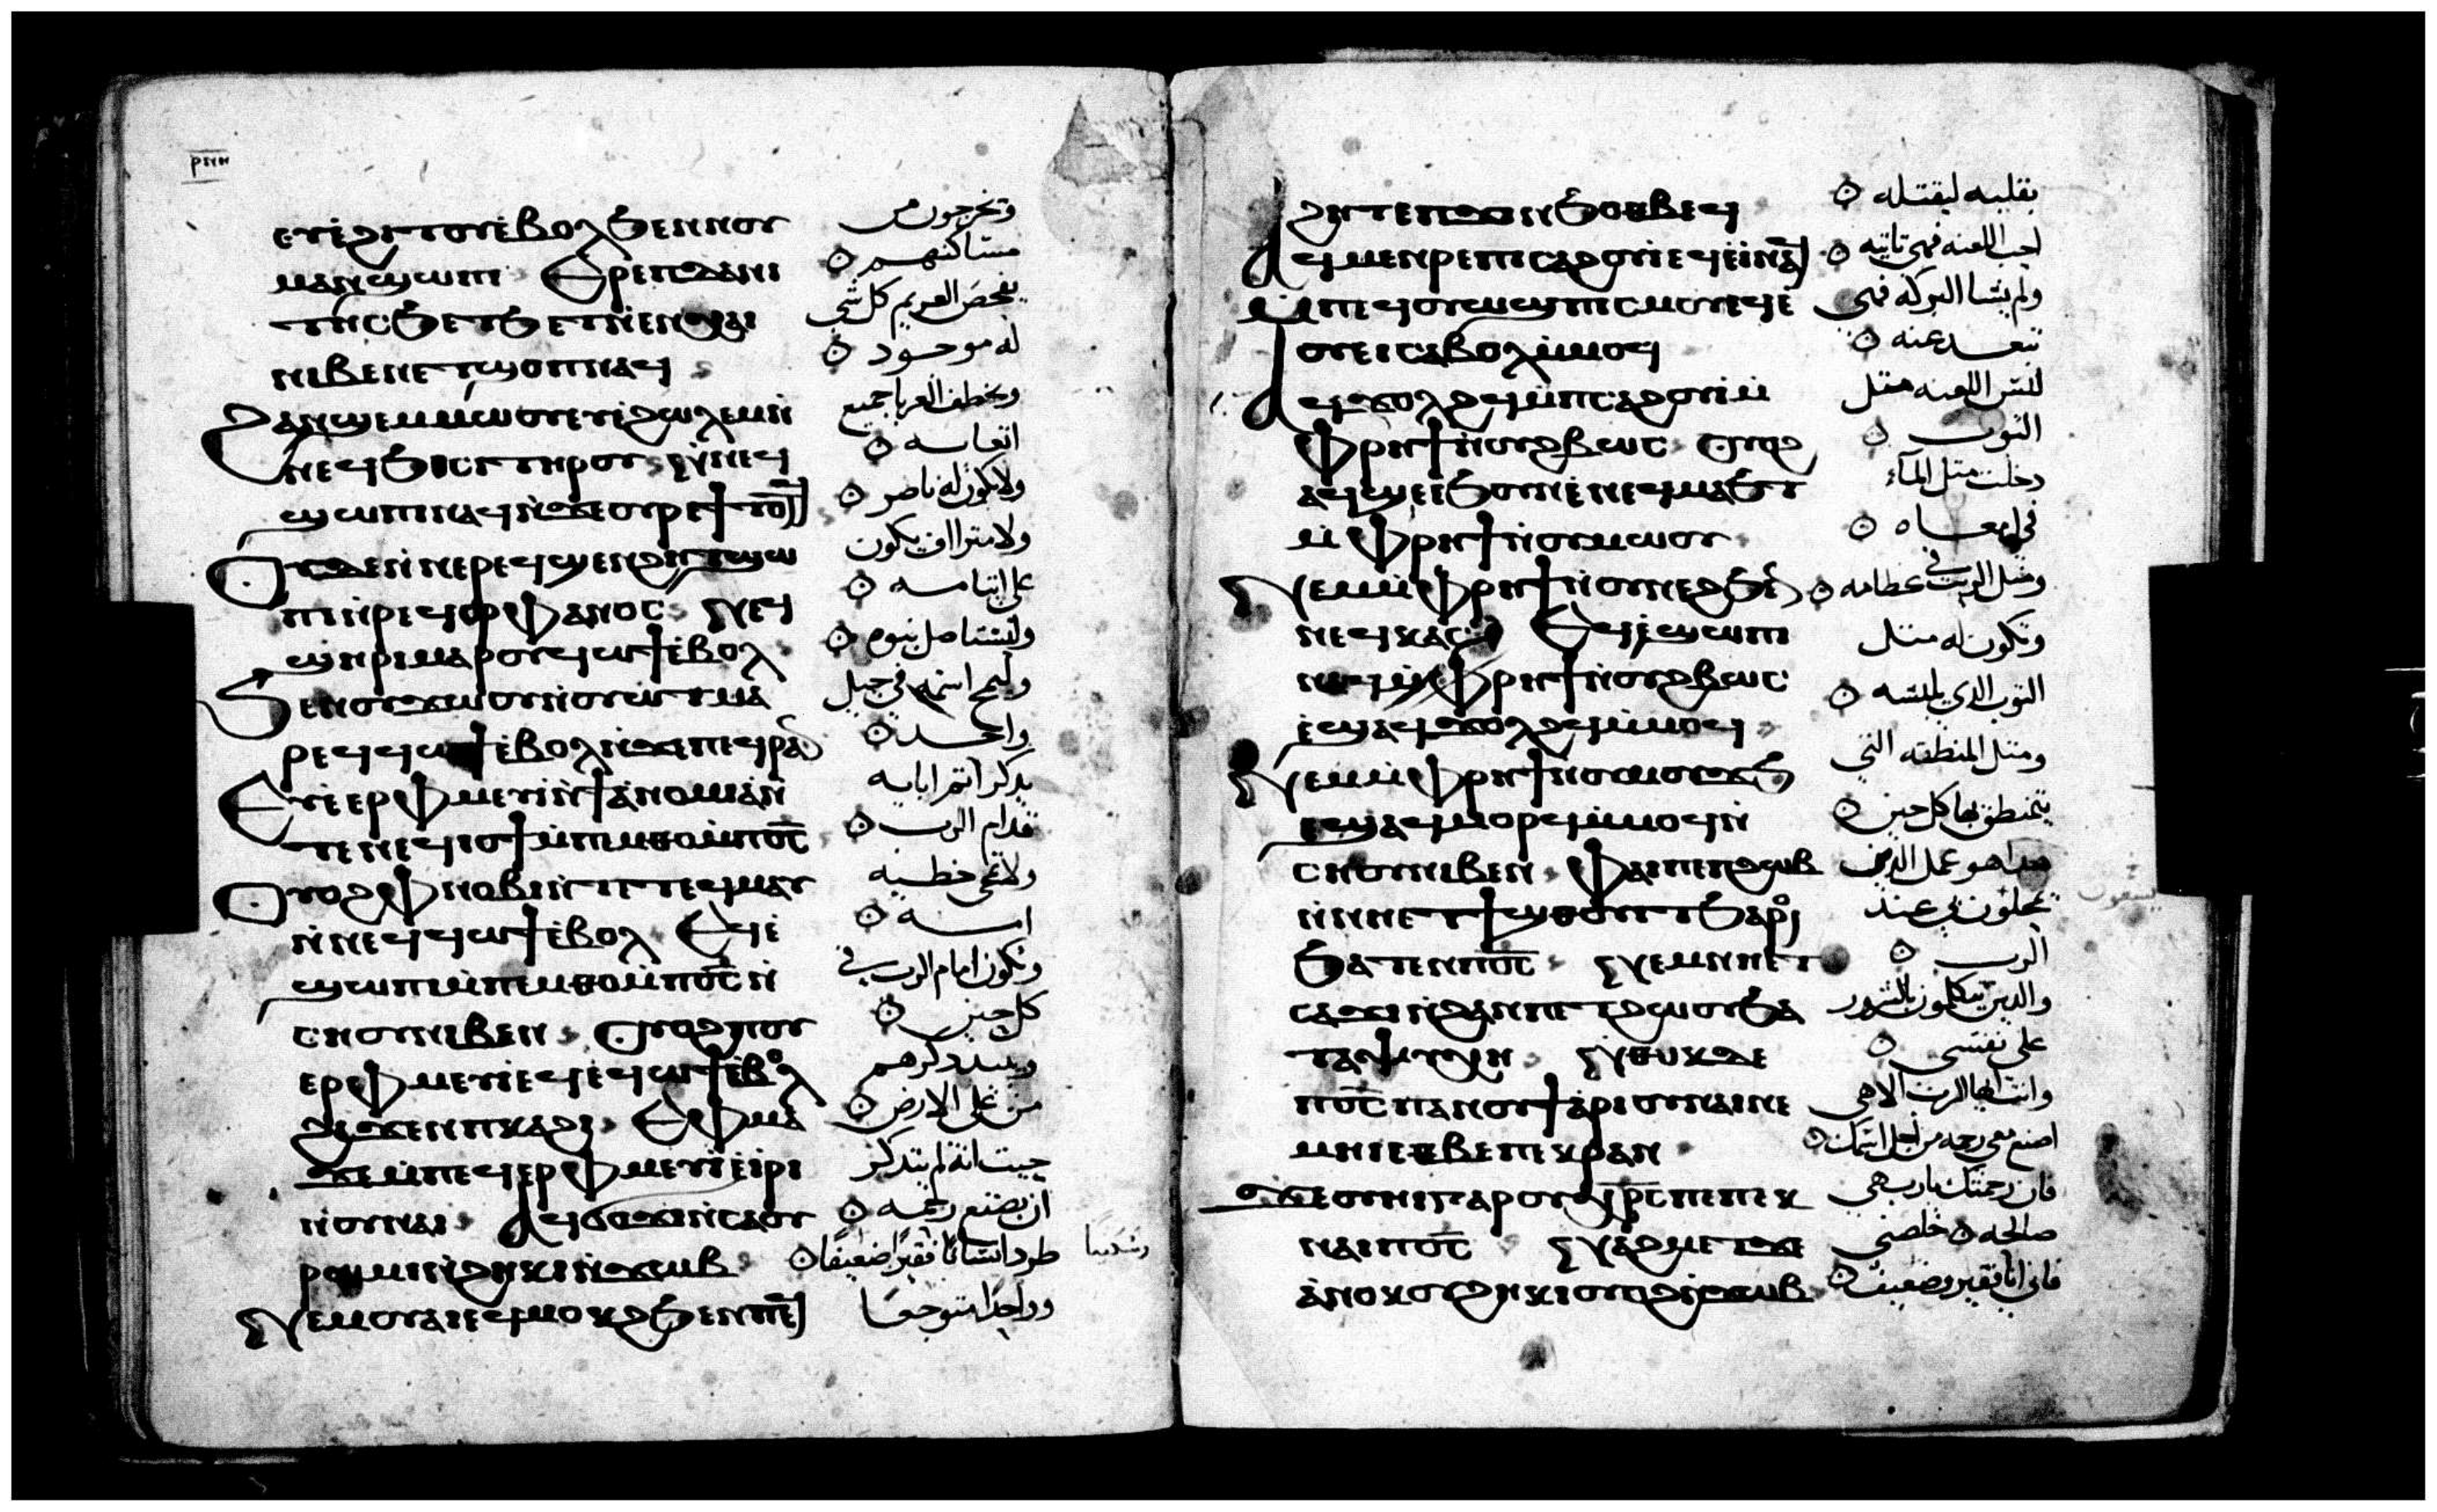 ⲉⲩⲉ̀ϩⲓⲧⲟⲩ ⲉ̀ⲃⲟⲗ ϧⲉⲛ ⲛⲟⲩ
ⲙⲁⲛϣⲱⲡⲓ Ⲉⲣⲉ ⲡⲓⲇⲁⲛⲓ
ⲥⲧⲏⲥ ϧⲉⲧϧⲉⲧ ⲛ̀ⲉⲛⲭⲁⲓ
ⲛⲓⲃⲉⲛ ⲉⲧϣⲟⲡ ⲛⲁϥ
Ϩⲁⲛϣⲉⲙⲙⲱⲟⲩ ⲉⲩⲉ̀ϩⲱⲗⲉⲙ ⲛ̀
ⲛⲉϥϧⲓⲥⲓ ⲧⲏⲣⲟⲩ ⲛ̀ⲛⲉϥ
ϣⲱⲡⲓ ⲛⲁϥ ⲛ̀ϫⲉ ⲟⲩⲣⲉϥϯⲧⲟⲧϥ
Ⲟⲩⲇⲉ ⲛ̀ⲛⲉ ⲣⲉϥϣⲉⲛϩⲏⲧ ϣⲱ
ⲡⲓ ⲛ̀ⲛⲉϥⲟⲣⲫⲁⲛⲟⲥ ⲛⲉϥ
ϣⲏⲣⲓ ⲙⲁⲣⲟⲩϥⲱϯ ⲉ̀ⲃⲟⲗ
Ϧⲉⲛ ⲟⲩϫⲱⲟⲩ ⲛ̀ⲟⲩⲱⲧ ⲙⲁ
ⲣⲉϥϥⲱϯ ⲉ̀ⲃⲟⲗ ⲛ̀ϫⲉ ⲡⲉϥⲣⲁⲛ
Ⲉⲩⲉ̀ⲉⲣⲫⲙⲉⲩⲓ̀ ⲛ̀ϯⲁ̀ⲛⲟⲙⲓⲁ ⲛ̀
ⲧⲉ ⲛⲉϥⲓⲟϯ ⲙ̀ⲡⲉⲙⲑⲟ ⲙ̀ⲡⲟ̅ⲥ̅
Ⲟⲩⲟϩ ⲫⲛⲟⲃⲓ ⲛ̀ⲧⲉ ⲧⲉϥⲙⲁⲩ
ⲛ̀ⲛⲉϥϥⲱϯ ⲉ̀ⲃⲟⲗ Ⲉϥⲉ̀
ϣⲱⲡⲓ ⲙ̀ⲡⲉⲙⲑⲟ ⲙ̀ⲡⲟ̅ⲥ̅ ⲛ̀
ⲥⲏⲟⲩ ⲛⲓⲃⲉⲛ Ⲟⲩⲟϩ ⲡⲟⲩ
ⲉⲣⲫⲙⲉⲩⲓ ⲉϥⲉ̀ϥⲱϯ ⲉ̀ⲃⲟⲗ
ϩⲓϫⲉⲛ ⲡⲕⲁϩⲓ Ⲉⲫⲙⲁ
ϫⲉ ⲙ̀ⲡⲉϥⲉⲣⲫⲙⲉⲩⲓ ⲉ̀ⲓⲣⲓ
ⲛ̀ⲟⲩⲛⲁⲓ Ⲁϥϭⲟϫⲓ ⲛ̀ⲥⲁ ⲟⲩ
ⲣⲱⲙⲓ ⲛ̀ϩⲏⲕⲓ ⲛ̀ϫⲱⲃ
Ⲛⲉⲙ ⲟⲩⲁⲓ ⲉϥⲙⲟⲕϩ ϧⲉⲛ ⲡⲉϥ
وتخرجون من
مساكنهم
يفحص الغريم كل شي
له موجود
ويخطف الغربا جميع
اتعابه
ولا يكون له ناصر
ولا مترااف يكون
على ايتامه
وليستاصل بنيوه
وليمح اسمه في جيل
واحد
يذكر اثم ابايه
قدام الرب
ولا تمحى خطيه
امه
وتكون امام الرب في
كل حين
ويبيد ذكرهم
من على الارض
حيث انه لم يتذكر
ان يصنع رحمه
طرد انسانا فقيرا ضعيفا
وواحدا متوجعا
ϩⲏⲧ ⲉ̀ⲡϫⲓⲛϧⲟⲑⲃⲉϥ
Ⲁϥⲙⲉⲛⲣⲉ ⲡⲓⲥⲁϩⲟⲩⲓ ⲉϥⲉ̀ⲓ̀ ⲛⲁϥ
ⲙ̀ⲡⲉϥⲟⲩⲱϣ ⲡⲓⲥⲙⲟⲩ ⲉϥⲉ̀
ⲟⲩⲉⲓ ⲥⲁⲃⲟⲗ ⲙ̀ⲙⲟϥ
Ⲁϥϫⲟⲗϩϥ ⲙ̀ⲡⲓⲥⲁϩⲟⲩⲓ ⲙ̀
ⲫⲣⲏϯ ⲛ̀ⲟⲩϩⲃⲱⲥ Ⲟⲩⲟϩ
ⲁϥϣⲉ ⲉ̀ϧⲟⲩⲛ ⲉ̀ⲛⲉϥⲙⲁϧⲧ
ⲙ̀ⲫⲣⲏϯ ⲛ̀ⲟⲩⲙⲱⲟⲩ
Ⲛⲉⲙ ⲙ̀ⲫⲣⲏϯ ⲛ̀ⲟⲩⲛⲉϩ ϧⲉⲛ
ⲛⲉϥⲕⲁⲥ Ⲉϥⲉ̀ϣⲱⲡⲓ
ⲛⲁϥ ⲙ̀ⲫⲣⲏϯ ⲛ̀ⲟⲩϩⲃⲱⲥ
ⲉ̀ϣⲁϥϫⲟⲗϩϥ ⲙ̀ⲙⲟϥ
Ⲛⲉⲙ ⲙ̀ⲫⲣⲏϯ ⲛ̀ⲟⲩⲙⲟϫϧ
ⲉϣⲁϥⲙⲟⲣϥ ⲙ̀ⲙⲟϥ ⲛ̀
ⲥⲏⲟⲩ ⲛⲓⲃⲉⲛ Ⲫⲁⲓ ⲡⲉ ⲡϩⲱⲃ
ⲛ̀ⲛⲏ ⲉⲧϯϣⲑⲟⲩⲓⲧ ϧⲁⲣⲟⲓ
ϧⲁⲧⲉⲛ ⲡⲟ̅ⲥ̅ ⲛⲉⲙ ⲛⲏ ⲉⲧ
ⲥⲁϫⲓ ⲛ̀ϩⲁⲛⲡⲉⲧϩⲱⲟⲩ ϧⲁ
ⲧⲁⲯⲩⲭⲏ Ⲛⲑⲟⲕ ⲇⲉ
ⲡⲟ̅ⲥ̅ ⲡⲁⲛⲟⲩϯ ⲁ̀ⲣⲓⲟⲩⲛⲁⲓ ⲛⲉ
ⲙⲏⲓ ⲉⲑⲃⲉ ⲡⲉⲕⲣⲁⲛ
ϫⲉ ⲟⲩⲏⲓ ⲅⲁⲣ ⲟⲩⲭⲣ̅ⲥ̅ ⲡⲉ ⲡⲉⲕ
ⲛⲁⲓ ⲡⲟ̅ⲥ̅ ⲛⲁϩⲙⲉⲧ ϫⲉ
ⲁ̀ⲛⲟⲕ ⲟⲩϩⲏⲕⲓ ⲟⲩⲟϩ ⲛ̀ϫⲱⲃ
بقلبه ليقتله
احب اللعنه فهي تاتيه
ولم يشا البركه فهي
تبعد عنه
لبس اللعنه مثل
الثوب
دخلت مثل الماء
في امعاه
ومثل الزيت في عظامه
وتكون له مثل
الثوب الذي يلبسه
ومثل المنطقه التي
يتمنطق بها كل حين
هذا هو عمل الذين
يمحلون بي عند
الرب
والذين يتكلمون بالشرور
على نفسي
وانت ايها الرب الاهي
اصنع معي رحمه من اجل اسمك
فان رحمتك يارب هي
صالحه خلصني
فاني انا فقير وضعيف